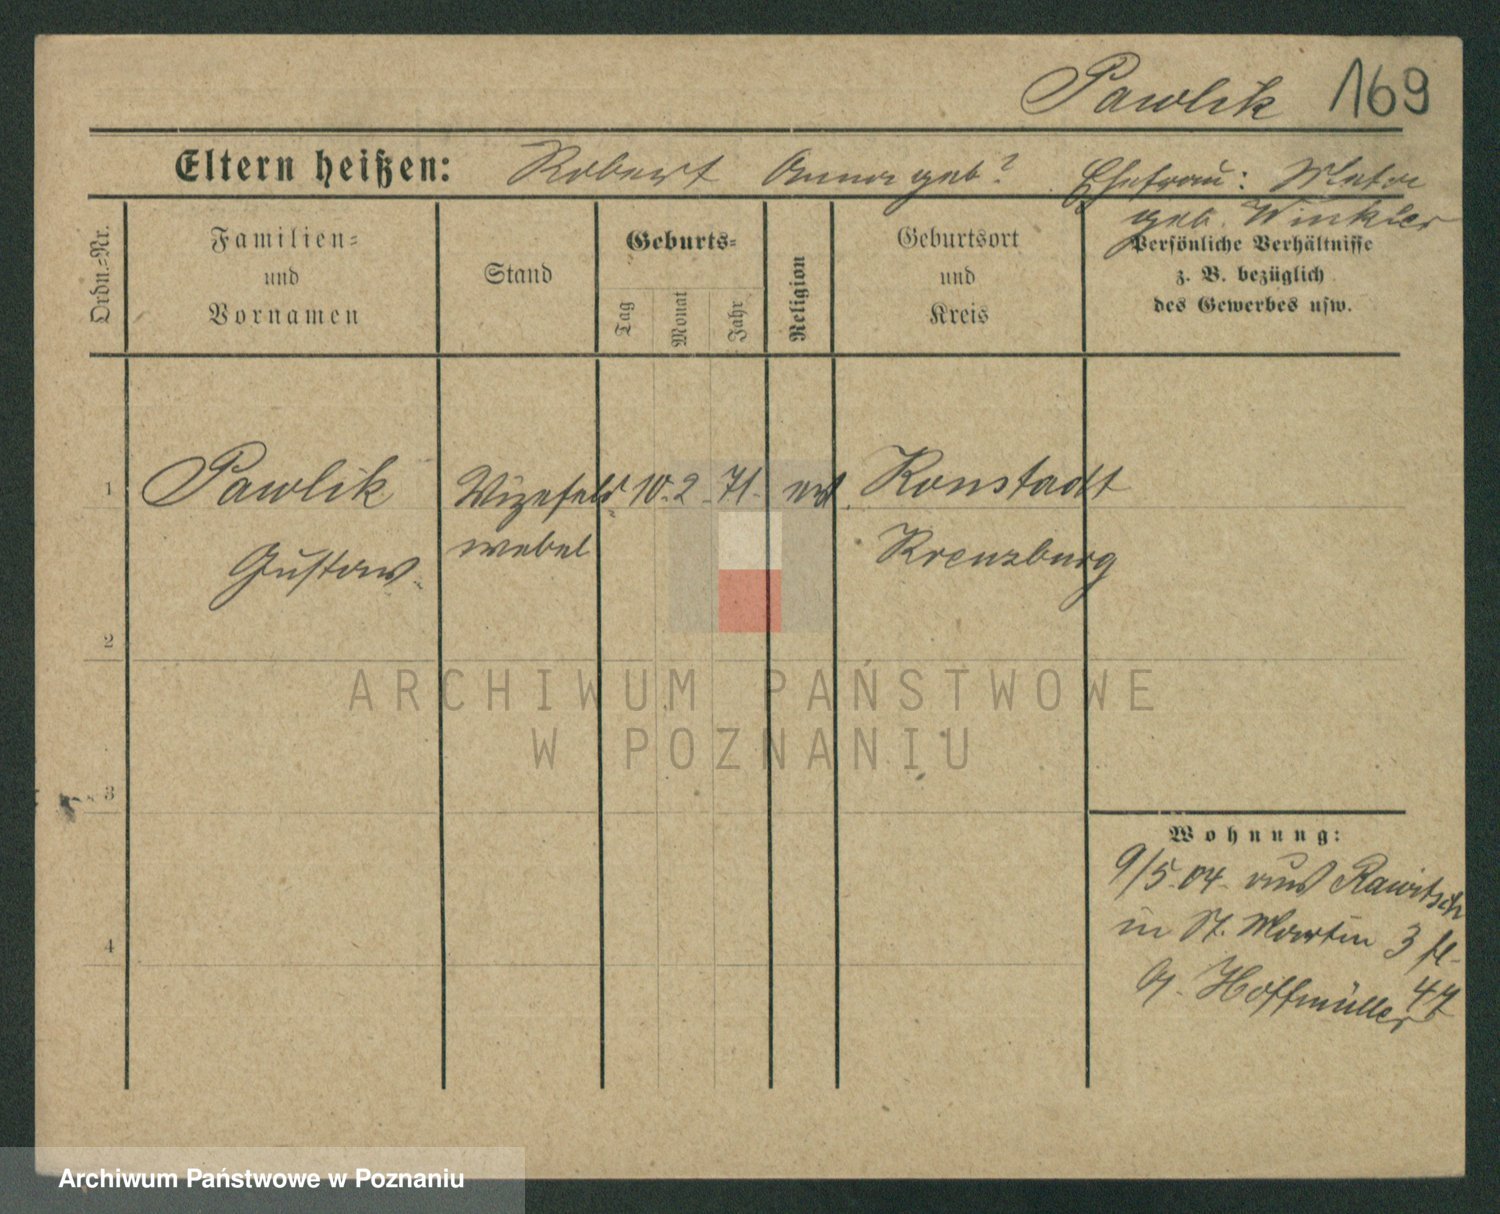 Pawlik 169
Eltern heißen: Robert Anna geb? Ehefrau: Meta
geb. Winkler
Ordn.-Nr.
Familien-
und
Vornamen
Stand
Geburts-
Tag
Monat
Jahr
Religion
Geburtsort
und
Kreis
Persönliche Verhältnisse
z. B. bezüglich
des Gewerbes usw.
1 Pawlik Vizefeld 10. 2. 71. ev. Konstadt
Gustav webel Kreuzburg
2
3
4
Wohnung:
9/5. 04. aus Rawitsch
in St. Martin 3
47
Hoffmüller
ARCHIWUM PAŃSTWOWE
W POZNANIU
Archiwum Państwowe w Poznaniu